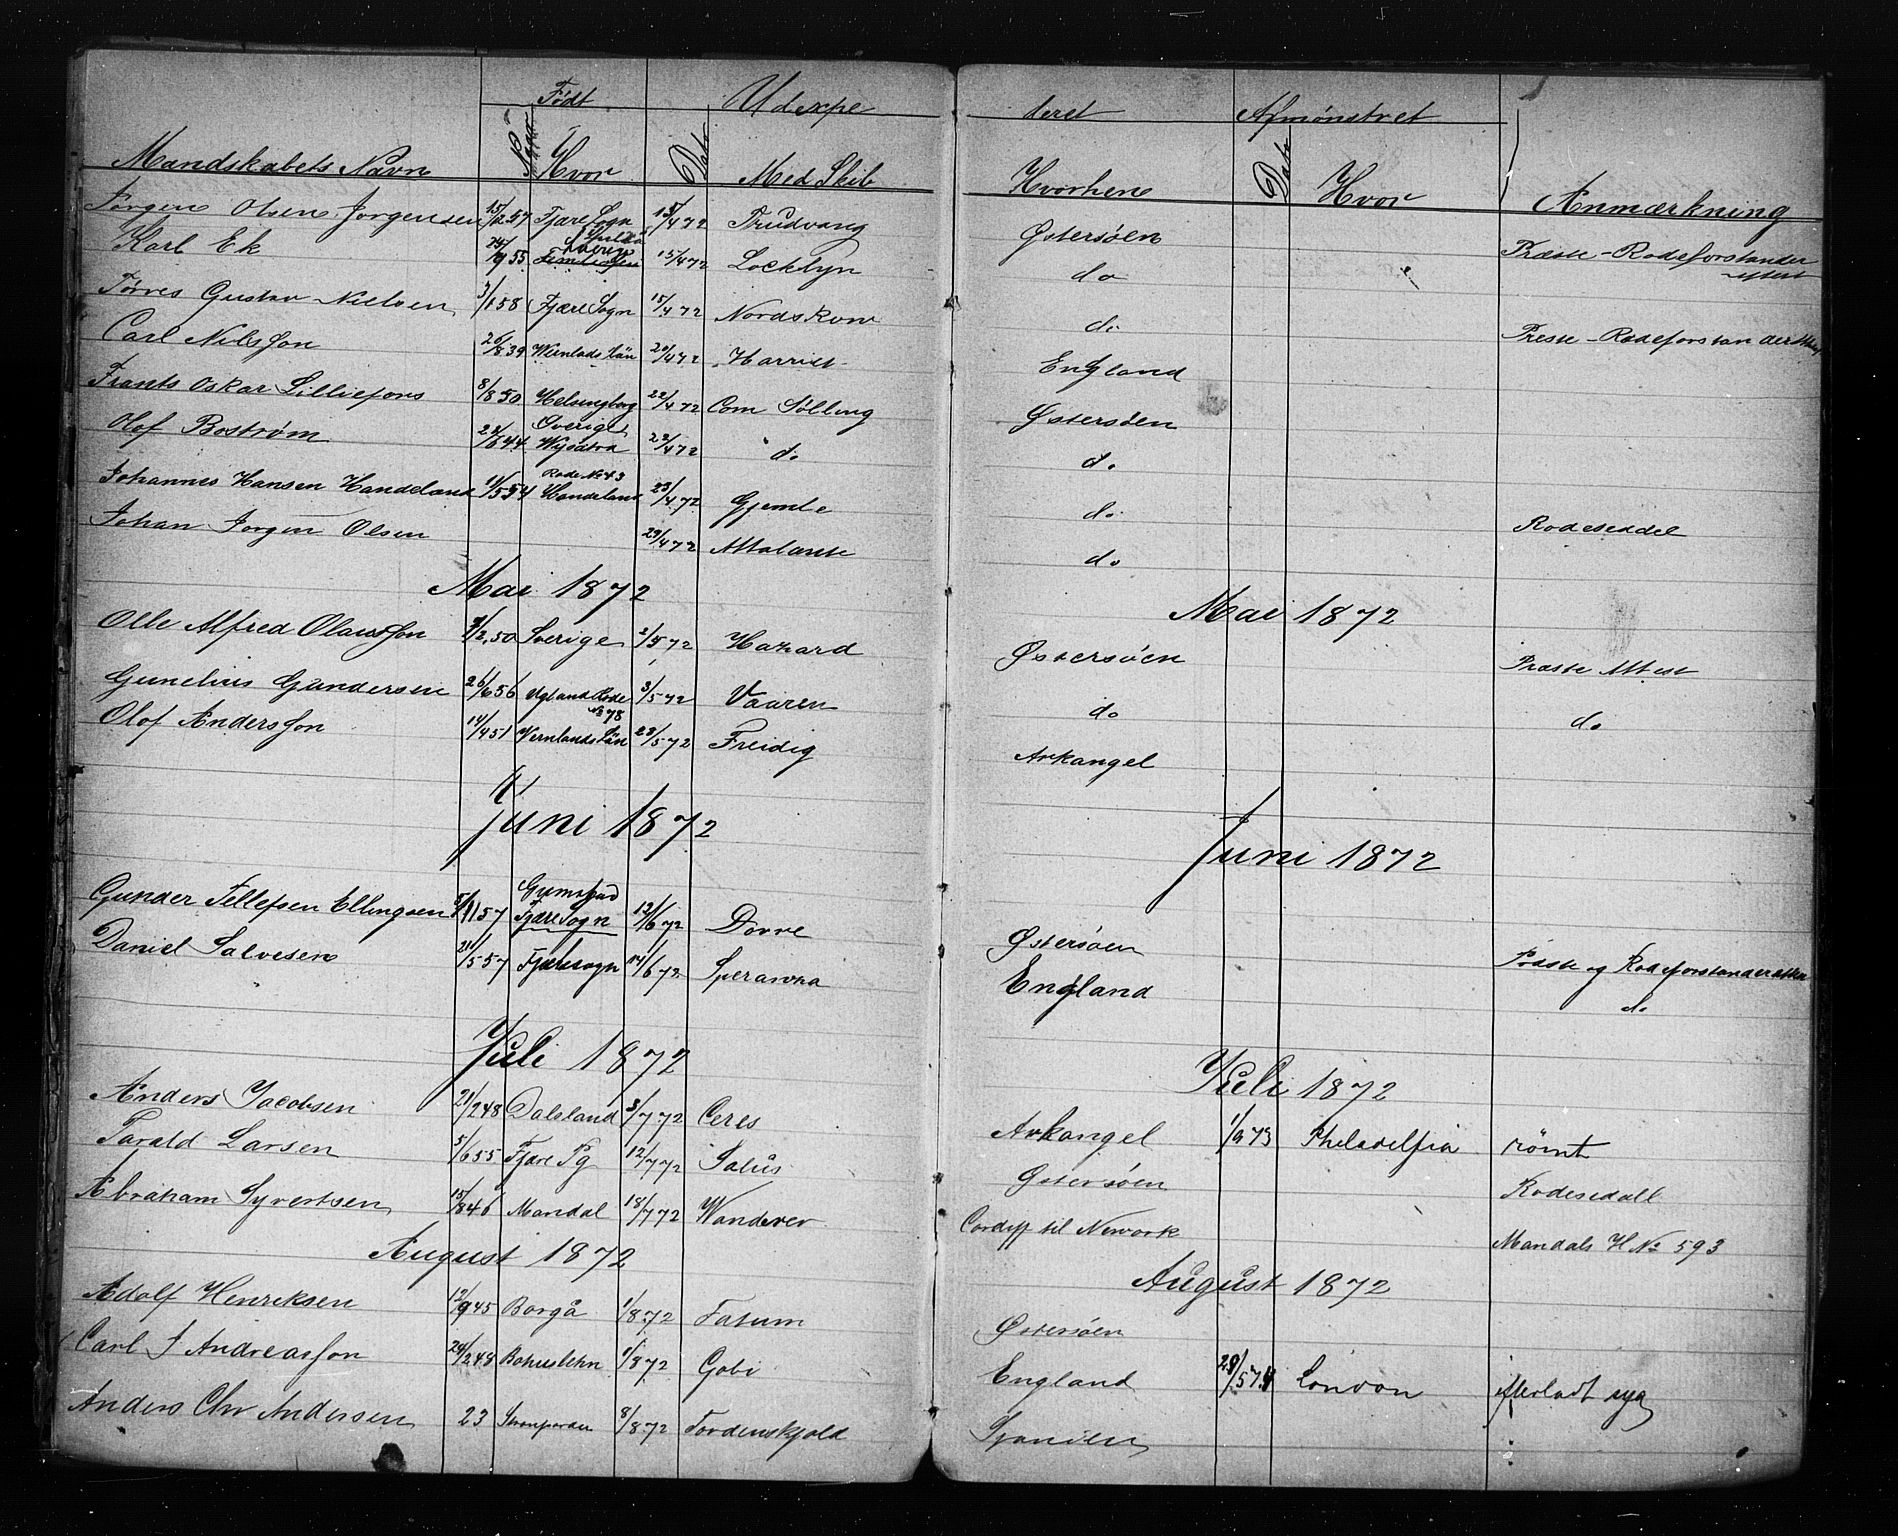 Født Udexpe deret Afmønstret
Mandskabets Navn Naar Hvor Date Med Skib Hvorhen Date Hvor Anmærkning
Jørgen Olsen Jørgensen 15/2 57 Fjære Sogn 15/4 72 Thrudvang Østersøen Præste-Rodeforstander attest
Karl Ek 9 55 Sverige 15/4 72 Locklyn do
Tørres Gustav Nielsen 3/1 58 Fjære Sogn 15/4 72 Nordskov do Præste-Rodeforstander Attest
Carl Nilsson 26/8 39 Wernlads Län 20/4 72 Harriet England
Frants Oskar Lilliefors 8/8 50 Helsingborg 22/4 72 Com Sølling Østersøen
Sverige
Olof Bostrøm 44 22/4 72 do do
Rode No 43
Johannes Hansen Handeland 11/5 54 Handeland 23/4 72 Gjemle do Rodeseddel
Johan Jørgen Olsen 29/4 72 Attalante do
Mai 1872 Mai 1872
Olle Alfred Olausson 9/2 50 Sverige 2/5 72 Hazard Østersøen Præste Attest
Gunelius Gundersen 26/6 56 Ugland Rode No 78 3/5 72 Vaaren do do
Olof Andersson 14/4 51 Vernlands Län 28/5 72 Freidig Arkangel
Juni 1872 Juni 1872
Grimstad
Gunder Tellefsen Ellingsen 5/11 57 Fjære Sogn 13/6 72 Dovre Østersøen Præste og Rodeforstanderattest
Daniel Salvesen 21/5 57 Fjæresogn 14/6 72 Speranza England do
Juli 1872 Juli 1872
Anders Jacobsen 21/2 48 Dalsland 3/7 72 Ceres Arkangel 1/9 73 Philadelfia rømt
Tarald Larsen 5/6 55 Fjære Pg 12/7 72 Salus Østersøen Rodesedall
Abraham Syvertsen 15/8 46 Mandal 18/7 72 Wanderer Cardiff til Newvork Mandals H No 593
August 1872 August 1872
Adolf Henriksen 12/9 45 Borgå 1/8 72 Fatum Østersøen
Carl J Andreasson 24/2 48 Bohuslehn 1/8 72 Gobi England 29/5 74 London efterladt syg
Anders Chr Andersen 23 8/8 72 Tordenskjold Spanien